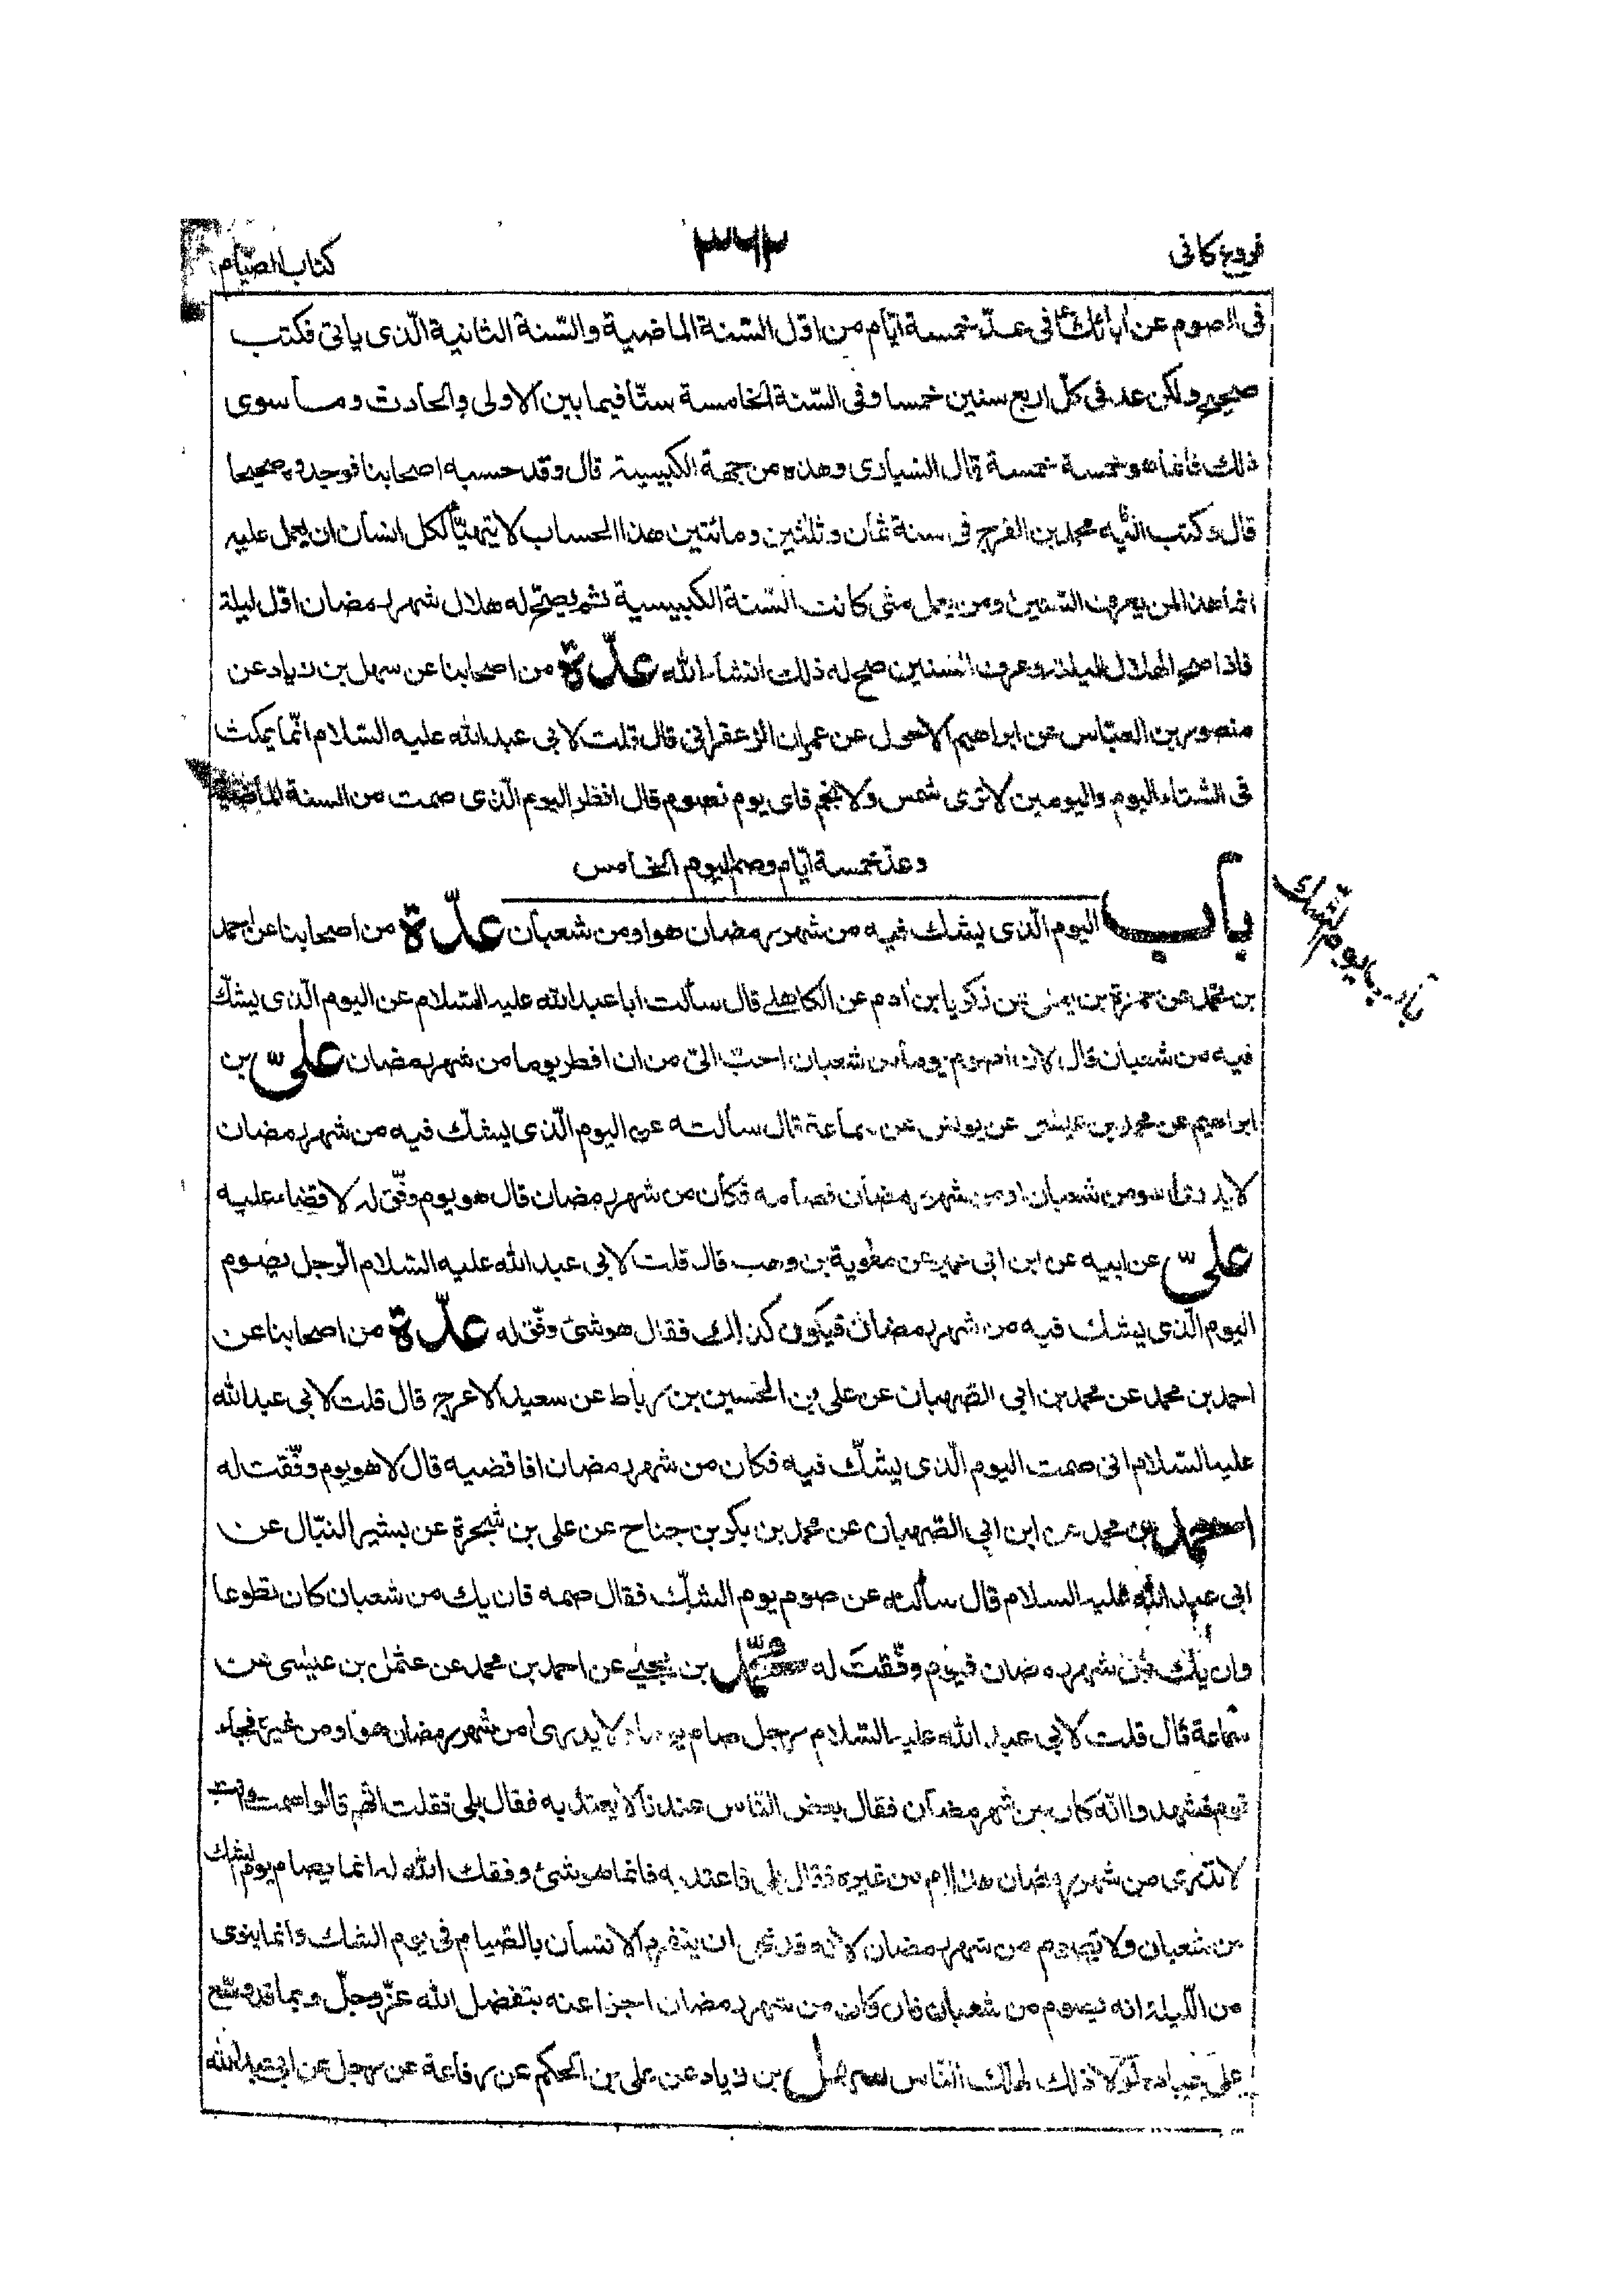 فروع كافى
٣٦٢
كتاب الصّيام
فى الصوم عن ابائك ع فى عدّ خمسة ايّام من اوّل السّنة الماضية والسّنة الثانية الّذى ياتى فكتب
صحيح ولكن عد فى كلّ اربع سنين خمسا وفى السّنة الخامسة ستّا فيما بين الاولى والحادث وما سوى
ذلك فانما هو خمسة خمسة قال السيارى وهذه من جهة الكبيسة قال وقد حسبه اصحابنا فوجدوه صحيحا
قال وكتب اليه محمد بن الفرج فى سنة ثمان وثلثين ومائتين هذا الحساب لا يتهيّأ لكل انسان ان يعمل عليه
انما هذا لمن يعرف السنين ومن يعلم متى كانت السّنة الكبيسية ثم يصحّ له هلال شهر رمضان اوّل ليلة
فاذا صح الهلال لليلته وعرف السنين صح له ذلك انشاء الله علّة من اصحابنا عن سهل بن زياد عن
منصور بن العبّاس عن ابراهيم الاحول عن عمران الزعفرانى قال قلت لابى عبد الله عليه السّلام انّما يمكث
فى الشتاء اليوم واليومين لا نرى شمس ولا نجم فاى يوم نصوم قال انظر اليوم الّذى صمت من السنة الماضية
وعدّ خمسة ايّام وصم اليوم الخامس
باب اليوم الّذى يشك فيه من شهر رمضان هو او من شعبان علّة من اصحابنا عن احمد
باب يوم الشّك
بن محمد عن حمزة بن يعلى عن زكريا بن ادم عن الكاهلى قال سألت ابا عبد الله عليه السّلام عن اليوم الّذى يشكّ
فيه من شعبان قال لان اصوم يوما من شعبان احبّ الىّ من ان افطر يوما من شهر رمضان علىّ بن
ابراهيم عن محمد بن عيسى عن يونس عن سماعة قال سألته عن اليوم الّذى يشكّ فيه من شهر رمضان
لا يدرى اهو من شعبان او من شهر رمضان فصامه فكان من شهر رمضان قال هو يوم وفّق له لا قضاء عليه
علىّ عن ابيه عن ابن ابى عمير عن معوية بن وهب قال قلت لابى عبد الله عليه السّلام الرّجل يصوم
اليوم الّذى يشك فيه من شهر رمضان فيكون كذلك فقال هو شئ وفّق له علّة من اصحابنا عن
احمد بن محمد عن محمد بن ابى الصّهبان عن على بن الحسين بن رباط عن سعيد الاعرج قال قلت لابى عبد الله
عليه السّلام انى صمت اليوم الّذى يشكّ فيه فكان من شهر رمضان افاقضيه قال لا هو يوم وفّقت له
احمد بن محمد عن ابن ابى الصّهبان عن محمد بن بكر بن جناح عن على بن شجرة عن بشير النبّال عن
ابى عبد الله عليه السلام قال سألته عن صوم يوم الشكّ فقال صمه فان يك من شعبان كان تطوعا
وان يك من شهر رمضان فيوم وفّقت له محمّد بن يحيى عن احمد بن محمد عن عثمن بن عيسى عن
سماعة قال قلت لابى عبد الله عليه السّلام رجل صام يوما لا يدرى امن شهر رمضان هو او من غيره فجاء
قوم فشهدوا انّه كان من شهر رمضان فقال بعض النّاس عندنا لا يعتدّ به فقال بلى فقلت انّهم قالوا صمت وانت
لا تدرى من شهر رمضان هذا ام من غيره فقال بلى فاعتد به فانما هو شئ وفقك الله له انما يصام يوم الشك
من شعبان ولا يصوم من شهر رمضان لانه قد نهى ان ينفرد الانسان بالصّيام فى يوم الشك وانما ينوى
من اللّيلة انه يصوم من شعبان فان كان من شهر رمضان اجزأ عنه بتفضل الله عزّ وجلّ وبما قد وسّع
على عباده ولولا ذلك لهلك النّاس سهل بن زياد عن على بن الحكم عن رفاعة عن رجل عن ابى عبد الله